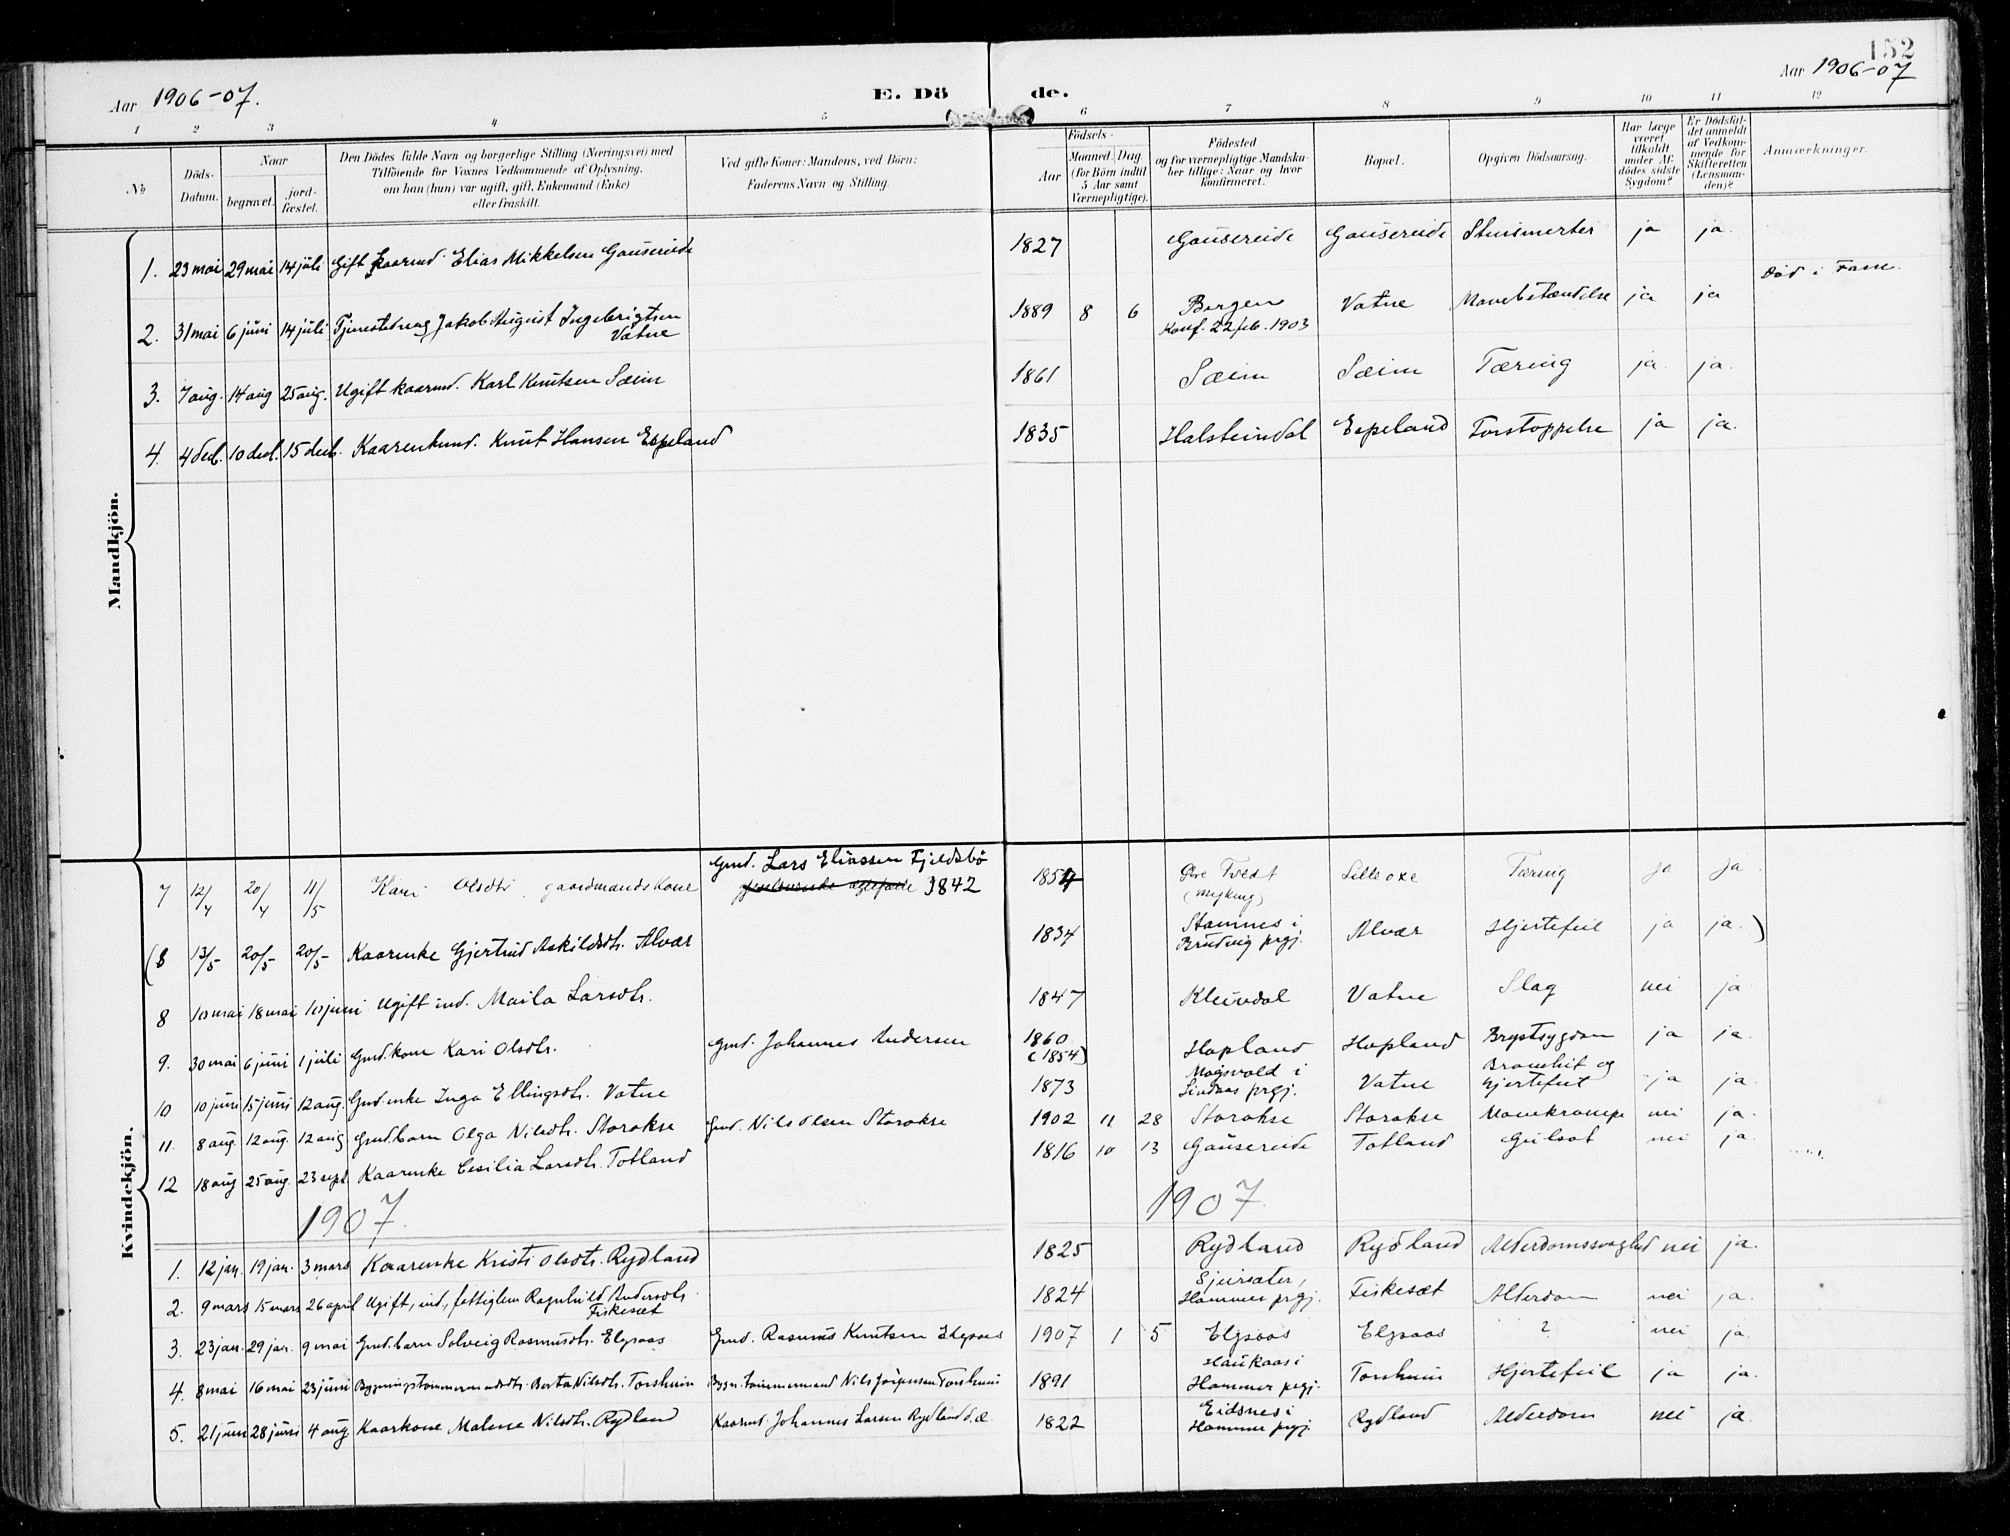 152
Aar 1906-07.
E. Döde.
Aar 1906-07
1 2 3 4 5 6 7 8 9 10 11 12
№
Döds-Datum.
Naar
begravet.
jord-fæstet.
Den Dödes fulde Navn og borgerlige Stilling (Næringsvei) med
Tilföiende for Voxnes Vedkommende af Oplysning,
om han (hun) var ugift, gift, Enkemand (Enke)
eller fraskilt.
Ved gifte Koner: Mandens, ved Börn:
Faderens Navn og Stilling.
Födsels-
Aar
Maaned. Dag.
(for Börn indtil
5 Aar samt
Værnepligtige).
Födested
og for værnepligtige Mandska-
ber tillige: Naar og hvor
konfirmeret.
Bopæl.
Opgiven Dödsaarsag.
Har Læge
været
tilkaldt
under Af-
dödes sidste
Sygdom?
Er Dödsfal-
det anmeldt
af Vedkom-
mende for
Skifteretten
(Lensman-
den)?
Anmærkninger.
Mandkjön.
1. 23 mai 29 mai 14 juli Gift kaarmd. Elias Mikkelsen Gausereide 1827 Gausereide Gausereide ja ja.
2. 31 mai 6 juni 14 juli Tjenestedreng Jakob August Ingebrigtsen Vatne 1889 8 6 Bergen Konf. 22 feb. 1903 Vatne Mavebetændelse ja ja Död i
3. 7 aug. 14 aug 25 aug. Ugift kaarmd. Karl Knutsen Sæim 1861 Sæim Sæim Tæring ja ja.
4. 4 decb. 10 decb. 15 decb. Kaarenkemd. Knut Hansen Espeland 1835 Halsteindal Espeland Forstoppelse ja ja.
Kvindekjön.
7 12/4 20/4 11/5 Kari Olsdtr. gaardmandskone Gmd. Lars Eliassen Fjeldsbö 1842 1854 Tveit (Myking) Lilleoxe Tæring ja ja.
(8 13/5 20/5 20/5 Kaarenke Gjertrud Askildsdtr. Alvær 1834 Stamnes i Bruvig prgj. Alvær Hjertefeil ja ja.)
8 10 mai 18 mai 10 juni Ugift ind. Marta Larsdtr. 1847 Kleivdal Vatne Slag nei ja
9. 30 mai 6 juni 1 juli Gmd.kone Kari Olsdtr. Gmd. Johannes Andersen 1860 (1854) Hopland Hopland Brystsygdom ja ja.
10 10 juni 15 juni 12 aug. Gmd.enke Inga Ellingsdtr. Vatne 1873 Mogsvold i Lindaas prgj. Vatne Bronchit og Hjertefeil ja ja.
11. 8 aug. 12 aug. 12 aug Gmd.barn Olga Nilsdtr. Storokse Gmd. Nils Olsen Storokse 1902 11 28 Storokse Storokse Mavekrampe nei ja.
12 18 aug 25 aug. 23 sept. Kaarenke Cesilia Larsdtr. Totland 1816 10 13 Gausereide Totland Gulsot nei ja.
1907. 1907.
1. 12 jan. 19 jan. 3 mars Kaarenke Kristi Olsdtr. Rydland 1825 Rydland Rydland Alderdomssvaghed nei ja.
2. 9 mars 15 mars 26 april Ugift, ind., fattiglem Ragnhild Andersdtr. Fiskeset 1824 Hammer prgj. Fiskesæt Alderdom nei ja.
3. 23 jan. 29 jan. 9 mai Gmd.barn Solveig Rasmusdtr. Elgsaas Gmd. Rasmus Knutsen Elgsaas 1907 1 5 Elgsaas Elgsaas ? nei ja.
4. 8 mai 16 mai 23 juni Berta Nilsdtr. Torsheim Bygn.tömmermand Nils Torsheim 1891 Haukaas i Hammer prgj. Torsheim Hjertefeil ja ja.
5. 21 juni 28 juni 4 aug Kaarkone Malene Nilsdtr. Rydland Kaarmd. Johannes Larsen Rydland d.æ. 1822 Eidsnes i Hammer prgj. Rydland Alderdom nei ja.